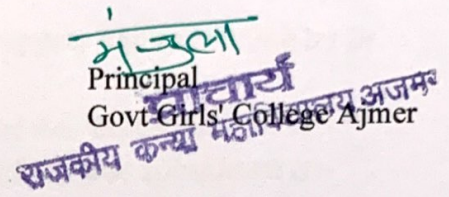 मंजुला
Principal
प्राचार्य
Govt Girls' College Ajmer
राजकीय कन्या महाविद्यालय अजमेर